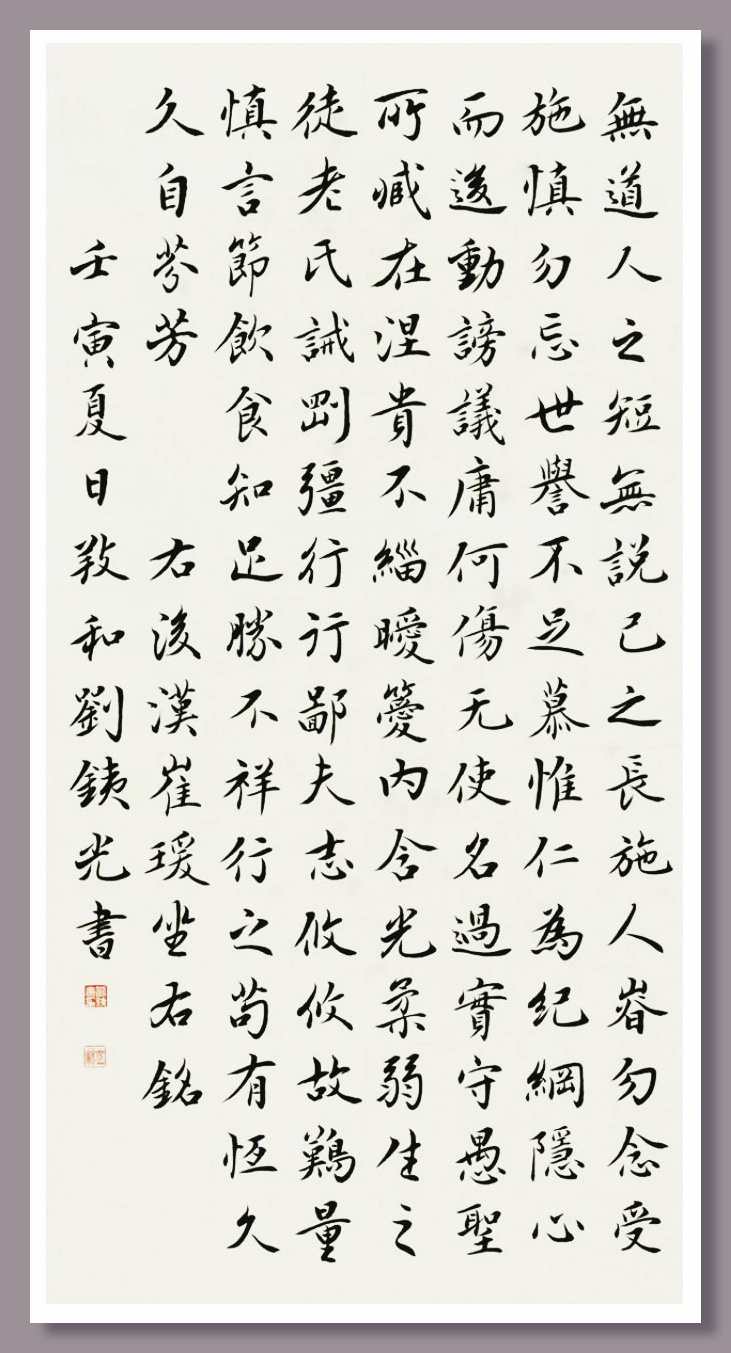 無道人之短無說己之長施人眘勿念受
施慎勿忘世譽不足慕惟仁為紀綱隱心
而後動謗議庸何傷无使名過實守愚聖
所臧在涅貴不緇曖籆內含光柔弱生之
徒老氏誡剛彊行行鄙夫志攸攸故難量
慎言節飲食知足勝不祥行之苟有恆久
久自芬芳 右後漢崔瑗坐右銘
壬寅夏日敦和劉銕光書